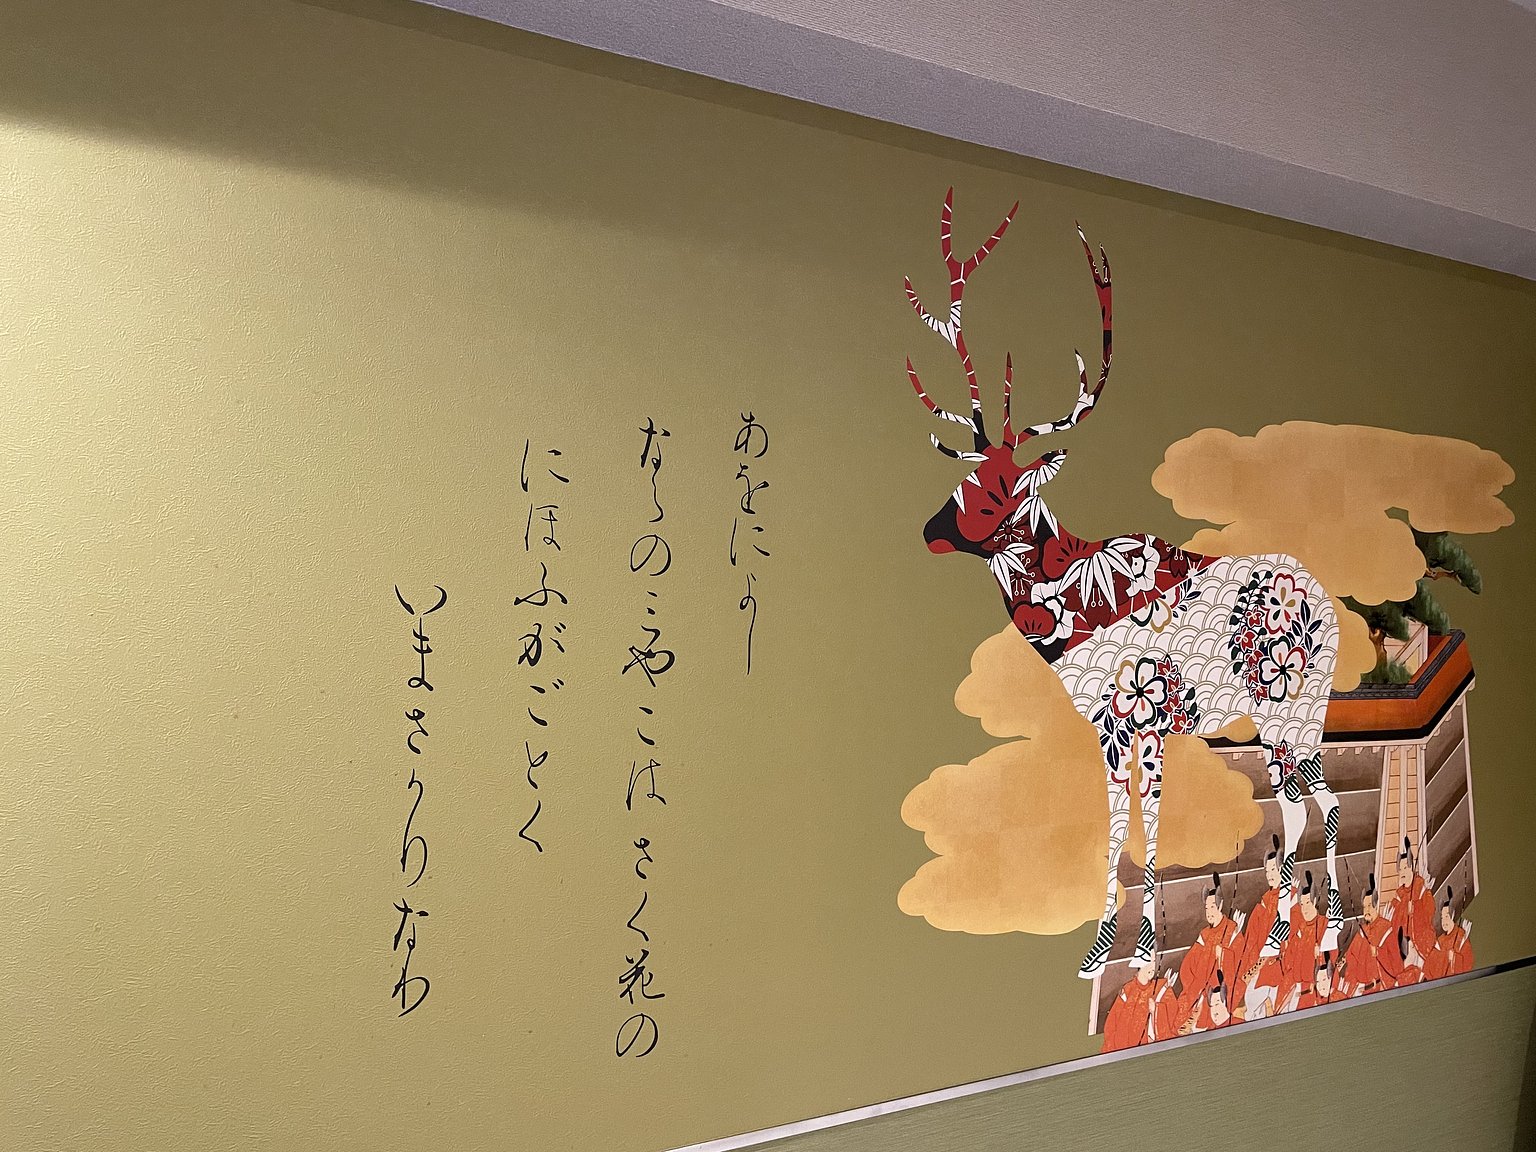 あをによし
ならのミやこはさく花の
にほふがごとく
いまさかりなり